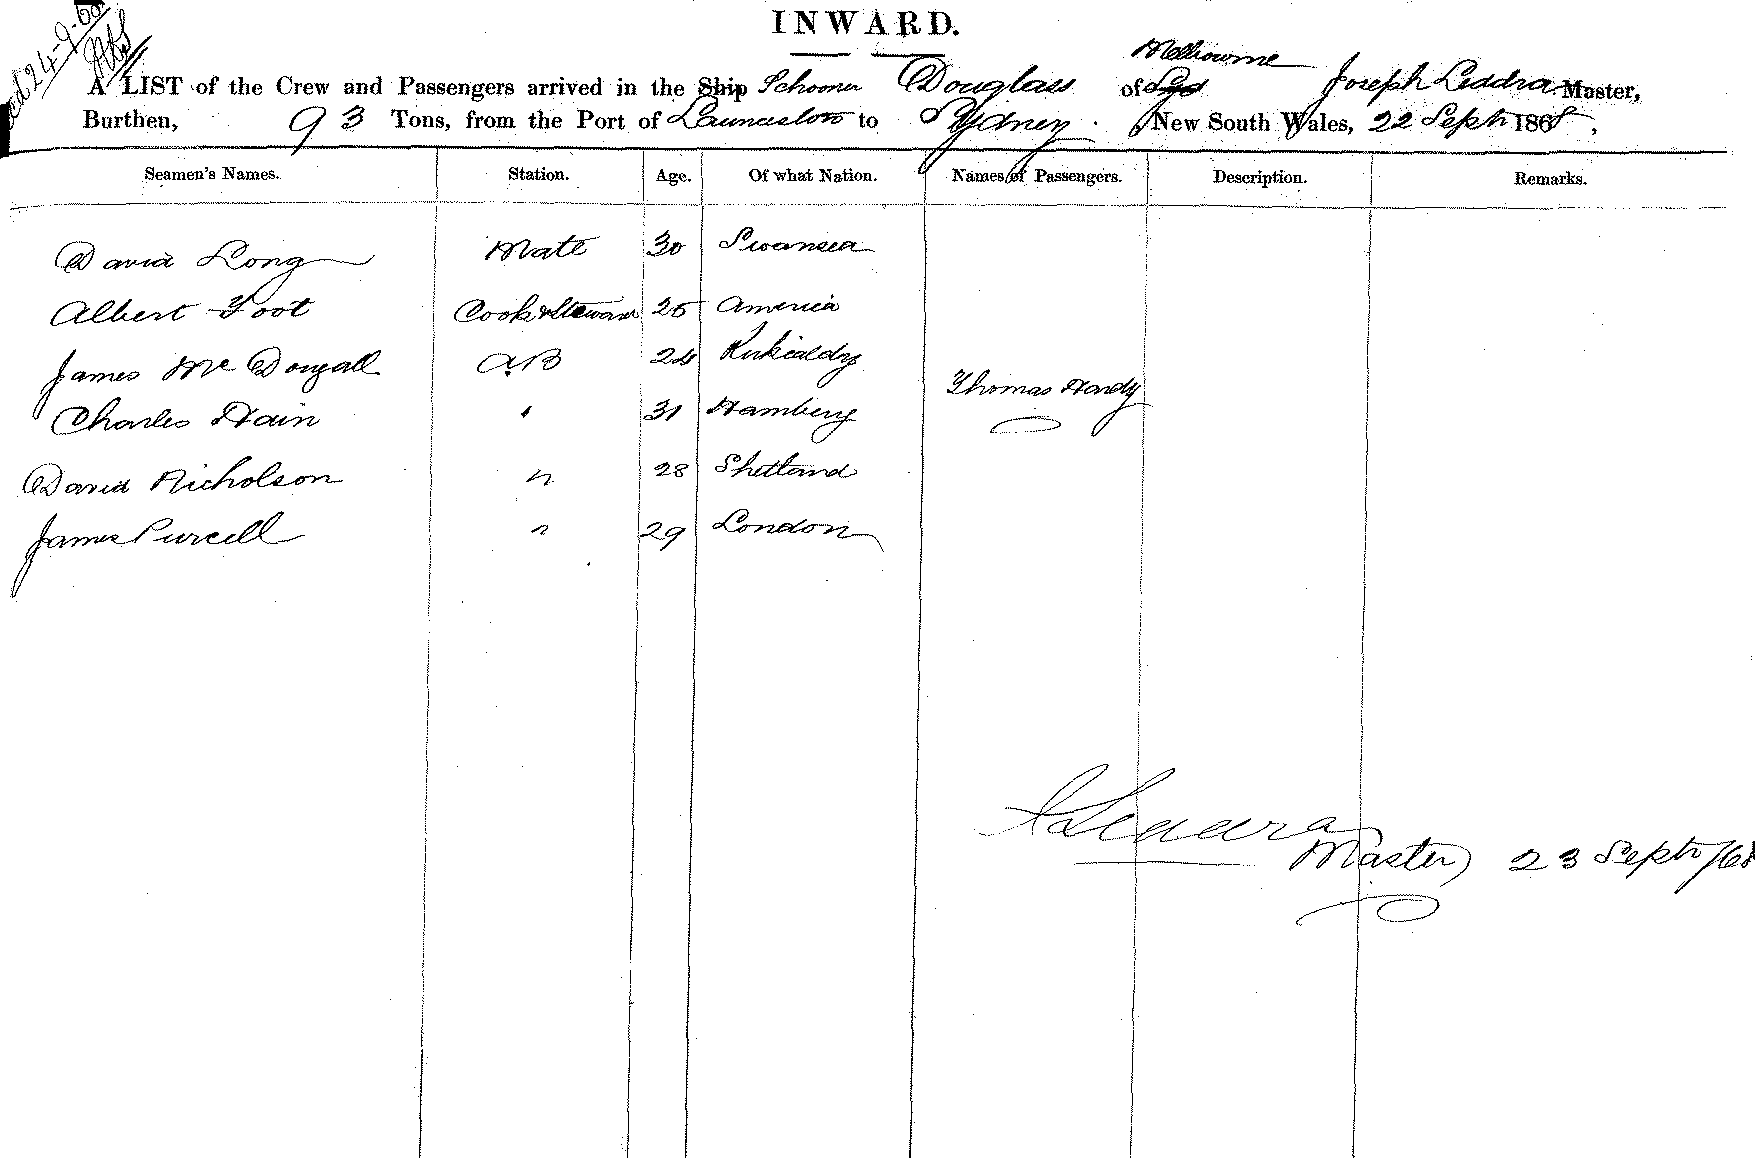 INWARD.
24-9-68
Melbourne
A LIST of the Crew and Passengers arrived in the Ship Schooner Douglass of Syd Joseph Leddra Master,
Burthen, 93 Tons, from the Port of Launceston to Sydney. New South Wales, 22 Septr 1868.
Seamen's Names. Station. Age. Of what Nation. Names of Passengers. Description. Remarks.
David Long Mate 30 Swansea
Albert Foot Cook & Steward 25 America
James McDougall AB 24 Kirkcaldy
Thomas Hardy
Charles Hain " 31 Hamberg
David Nicholson " 28 Shetland
James Purcell " 29 London
J Leddra
Master 23 Septr /68